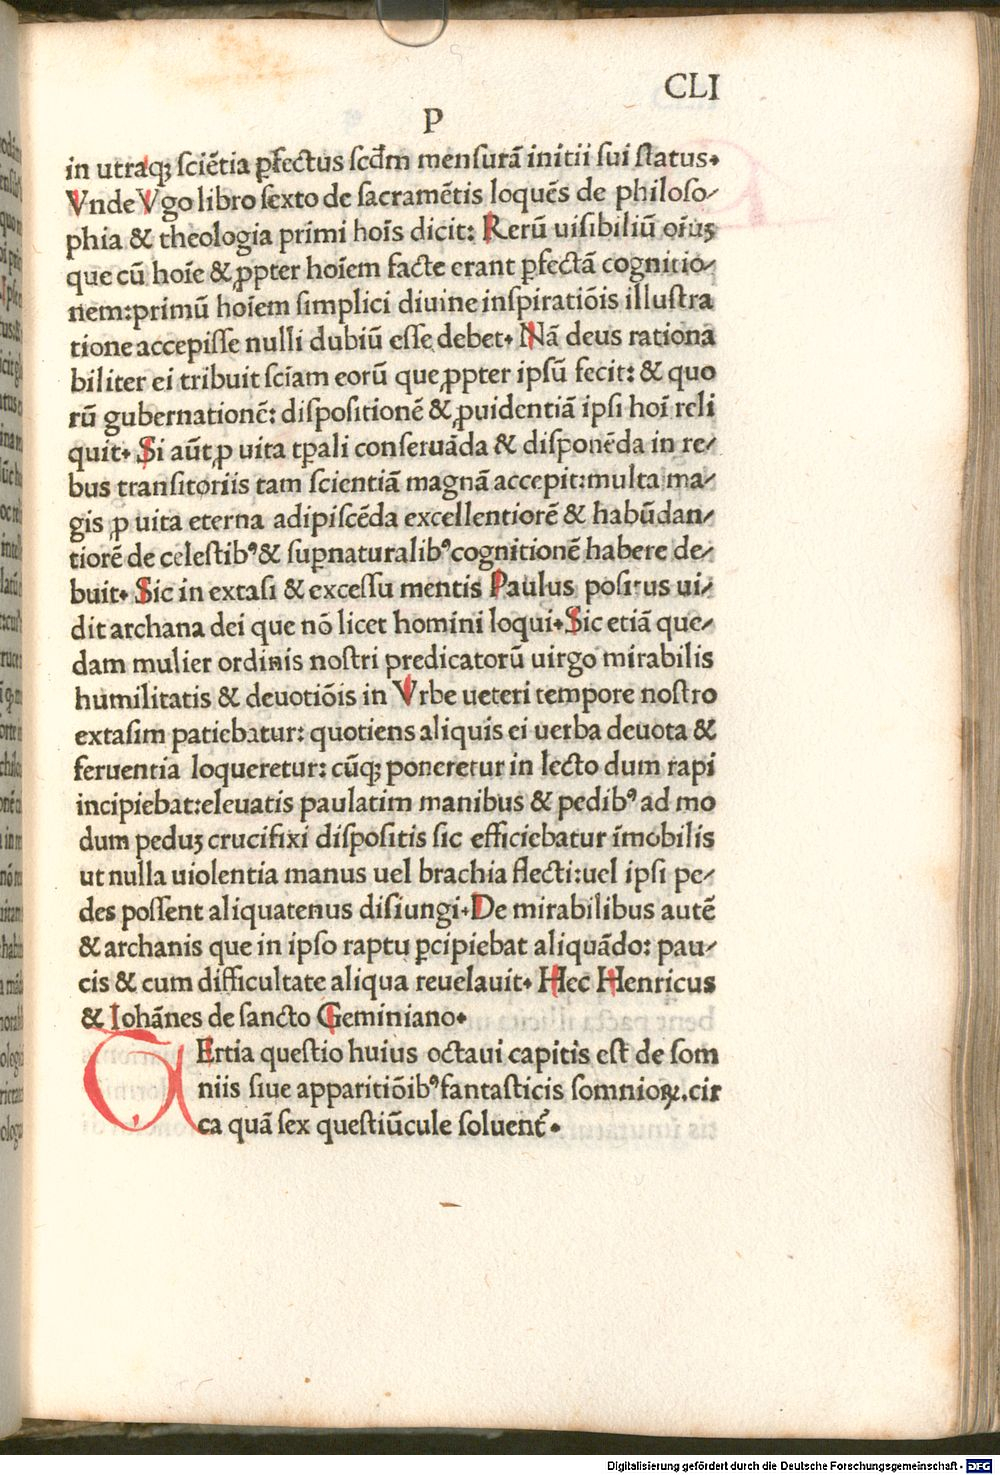 CLI
P
in utraqꝫ ſciẽtia ꝑfectus ſcd̃m menſurã initii ſui ſtatus.
Vnde Vgo libro ſexto de ſacramẽtis loquẽs de philoſo-
phia & theologia primi hoĩs dicit: Rerũ uiſibiliũ oĩuꝫ
que cũ hoĩe & ꝓpter hoĩem facte erant ꝑfectã cognitio-
nem: primũ hoĩem ſimplici diuine inſpiratiõis illuſtra
tione accepiſſe nulli dubiũ eſſe debet. Nã deus rationa
biliter ei tribuit ſciam eorũ que ꝓpter ipſũ fecit: & quo
rũ gubernationẽ: diſpoſitionẽ & ꝓuidentiã ipſi hoĩ reli
quit. Si aũt ꝓ uita tꝑali conſeruãda & diſponẽda in re-
bus tranſitoriis tam ſcientiã magnã accepit: multa ma-
gis ꝓ uita eterna adipiſcẽda excellentiorẽ & habũdan-
tiorẽ de celeſtibꝰ & ſuꝑnaturalibꝰ cognitionẽ habere de-
buit. Sic in extaſi & exceſſu mentis Paulus poſitus ui-
dit archana dei que nõ licet homini loqui. Sic etiã que-
dam mulier ordinis noſtri predicatorũ uirgo mirabilis
humilitatis & deuotiõis in Vrbe ueteri tempore noſtro
extaſim patiebatur: quotiens aliquis ei uerba deuota &
feruentia loqueretur: cũqꝫ poneretur in lecto dum rapi
incipiebat: eleuatis paulatim manibus & pedibꝰ ad mo
dum peduꝫ crucifixi diſpoſitis ſic efficiebatur ĩmobilis
ut nulla uiolentia manus uel brachia flecti: uel ipſi pe-
des poſſent aliquatenus diſiungi. De mirabilibus autẽ
& archanis que in ipſo raptu ꝑcipiebat aliquãdo: pau-
cis & cum difficultate aliqua reuelauit. Hec Henricus
& Iohãnes de ſancto Geminiano.
TErtia queſtio huius octaui capitis eſt de ſom
niis ſiue apparitiõibꝰ fantaſticis ſomnioꝝ. cir
ca quã ſex queſtiũcule ſoluent᷑.
Digitalisierung gefördert durch die Deutsche Forschungsgemeinschaft - DFG